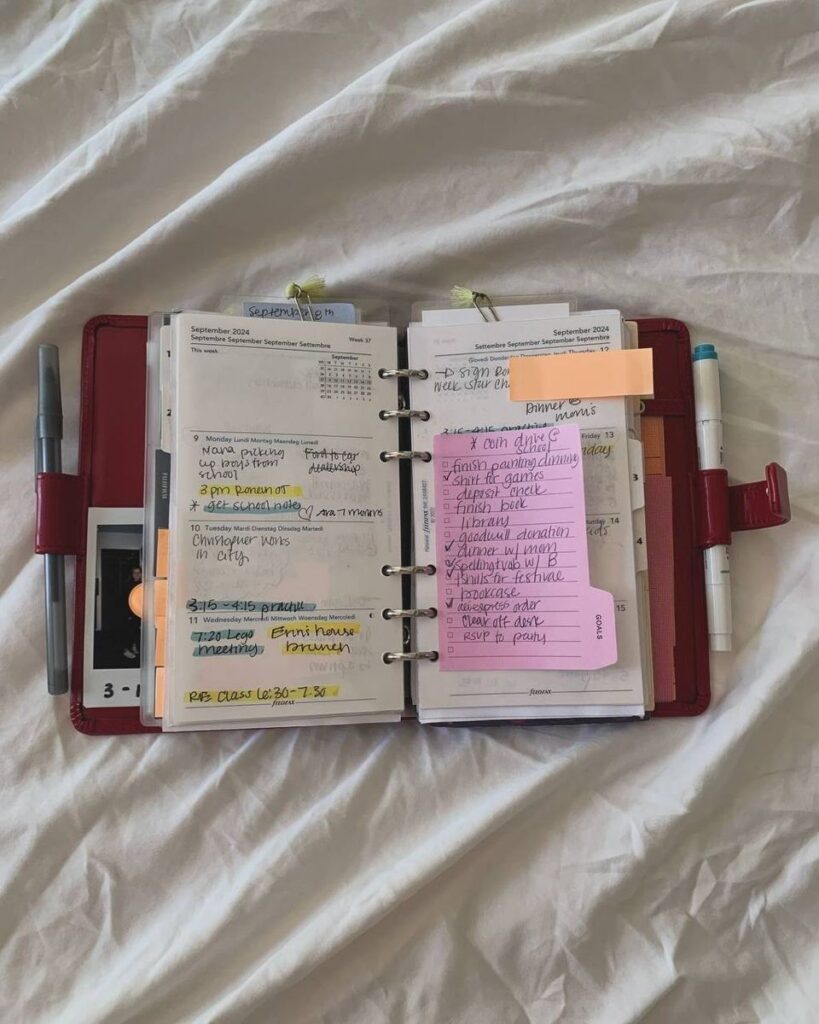 September 8th
September 2024
Week 37
Septembre September September Settembre
This week
September
9 Monday Lundi Montag Maandag Lunedì
Nana picking
up boys from
school
Ford to car
dealership
3pm Ronan OT
* get school notes
♡ Ara 7 months
10 Tuesday Mardi Dienstag Dinsdag Martedì
Christopher works
in city
3:15 - 4:15 practice
11 Wednesday Mercredi Mittwoch Woensdag Mercoledì
7:20 Lego
meeting
Erin's house
brunch
RE Class 6:30-7:30
filofax
3-1
September 2024
Settembre September September Septembre
Giovedì Donderdag Donnerstag Jeudi Thursday 12
→ sign
week star
Dinner @
mom's
3:15 - 4:15 practice
Friday 13
14
15
* coin drive @
school
finish painting dinning
✓ shirt for games
deposit check
finish book
library
goodwill donation
✓ dinner w/ mom
✓ spelling vocab w/ B
✓ for festival
bookcase
✓ order
clear off desk
RSVP to party
GOALS
filofax